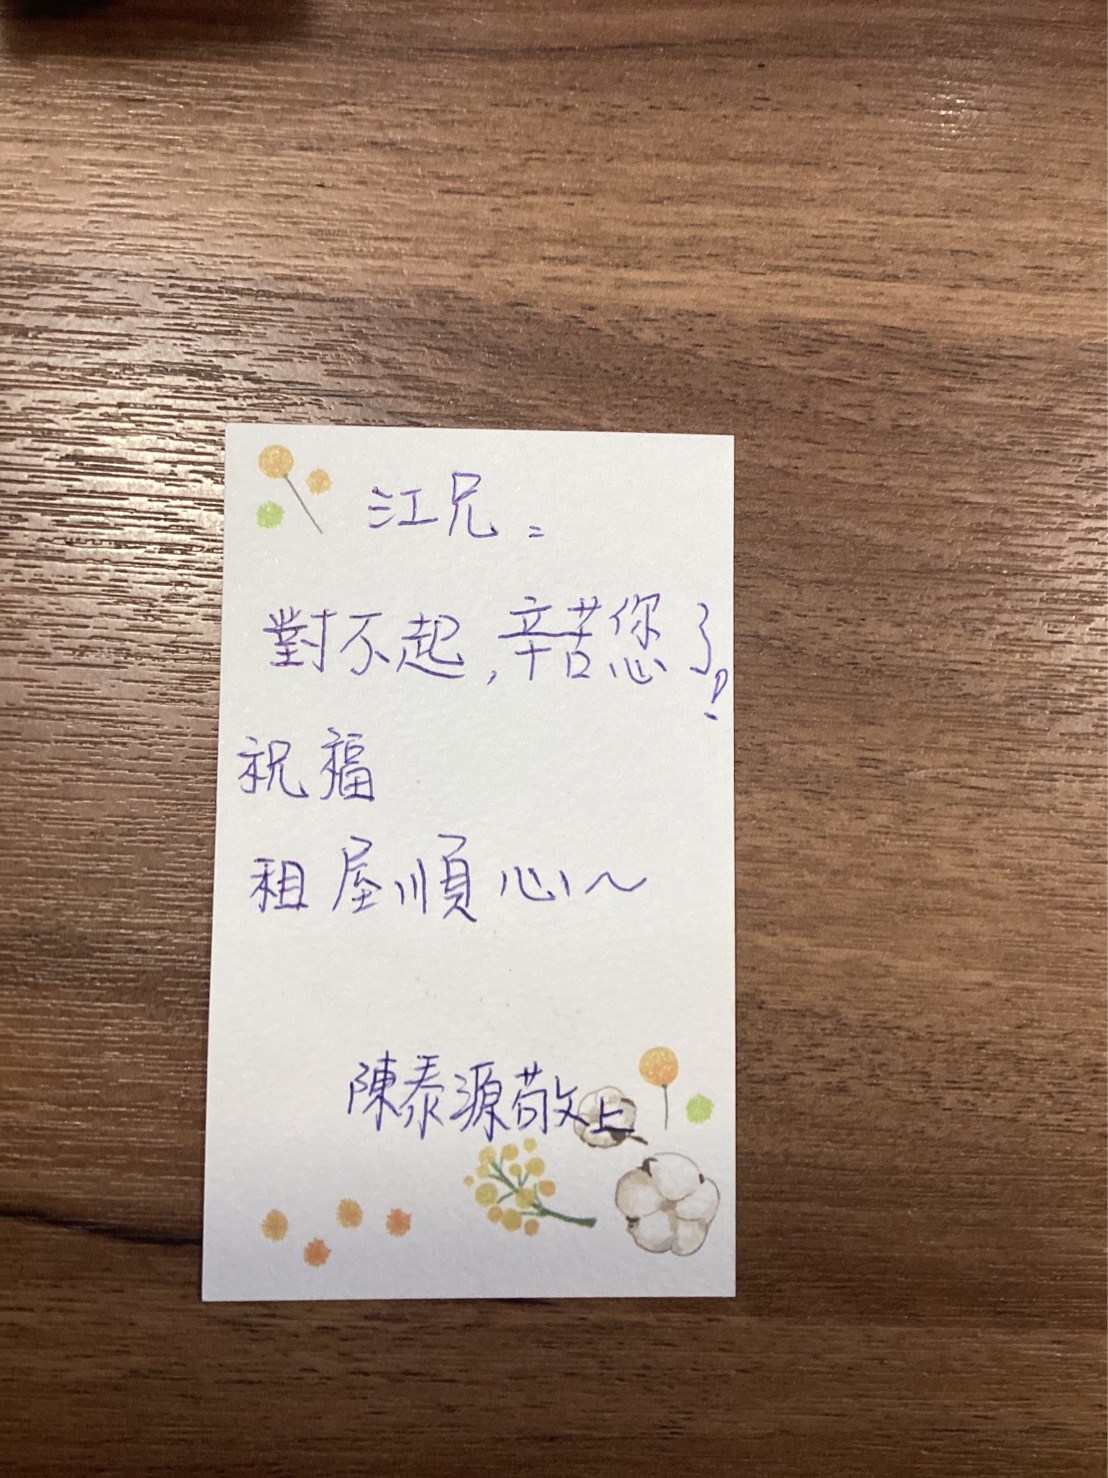 江兄:
對不起,辛苦您了!
祝福
租屋順心~
陳泰源敬上